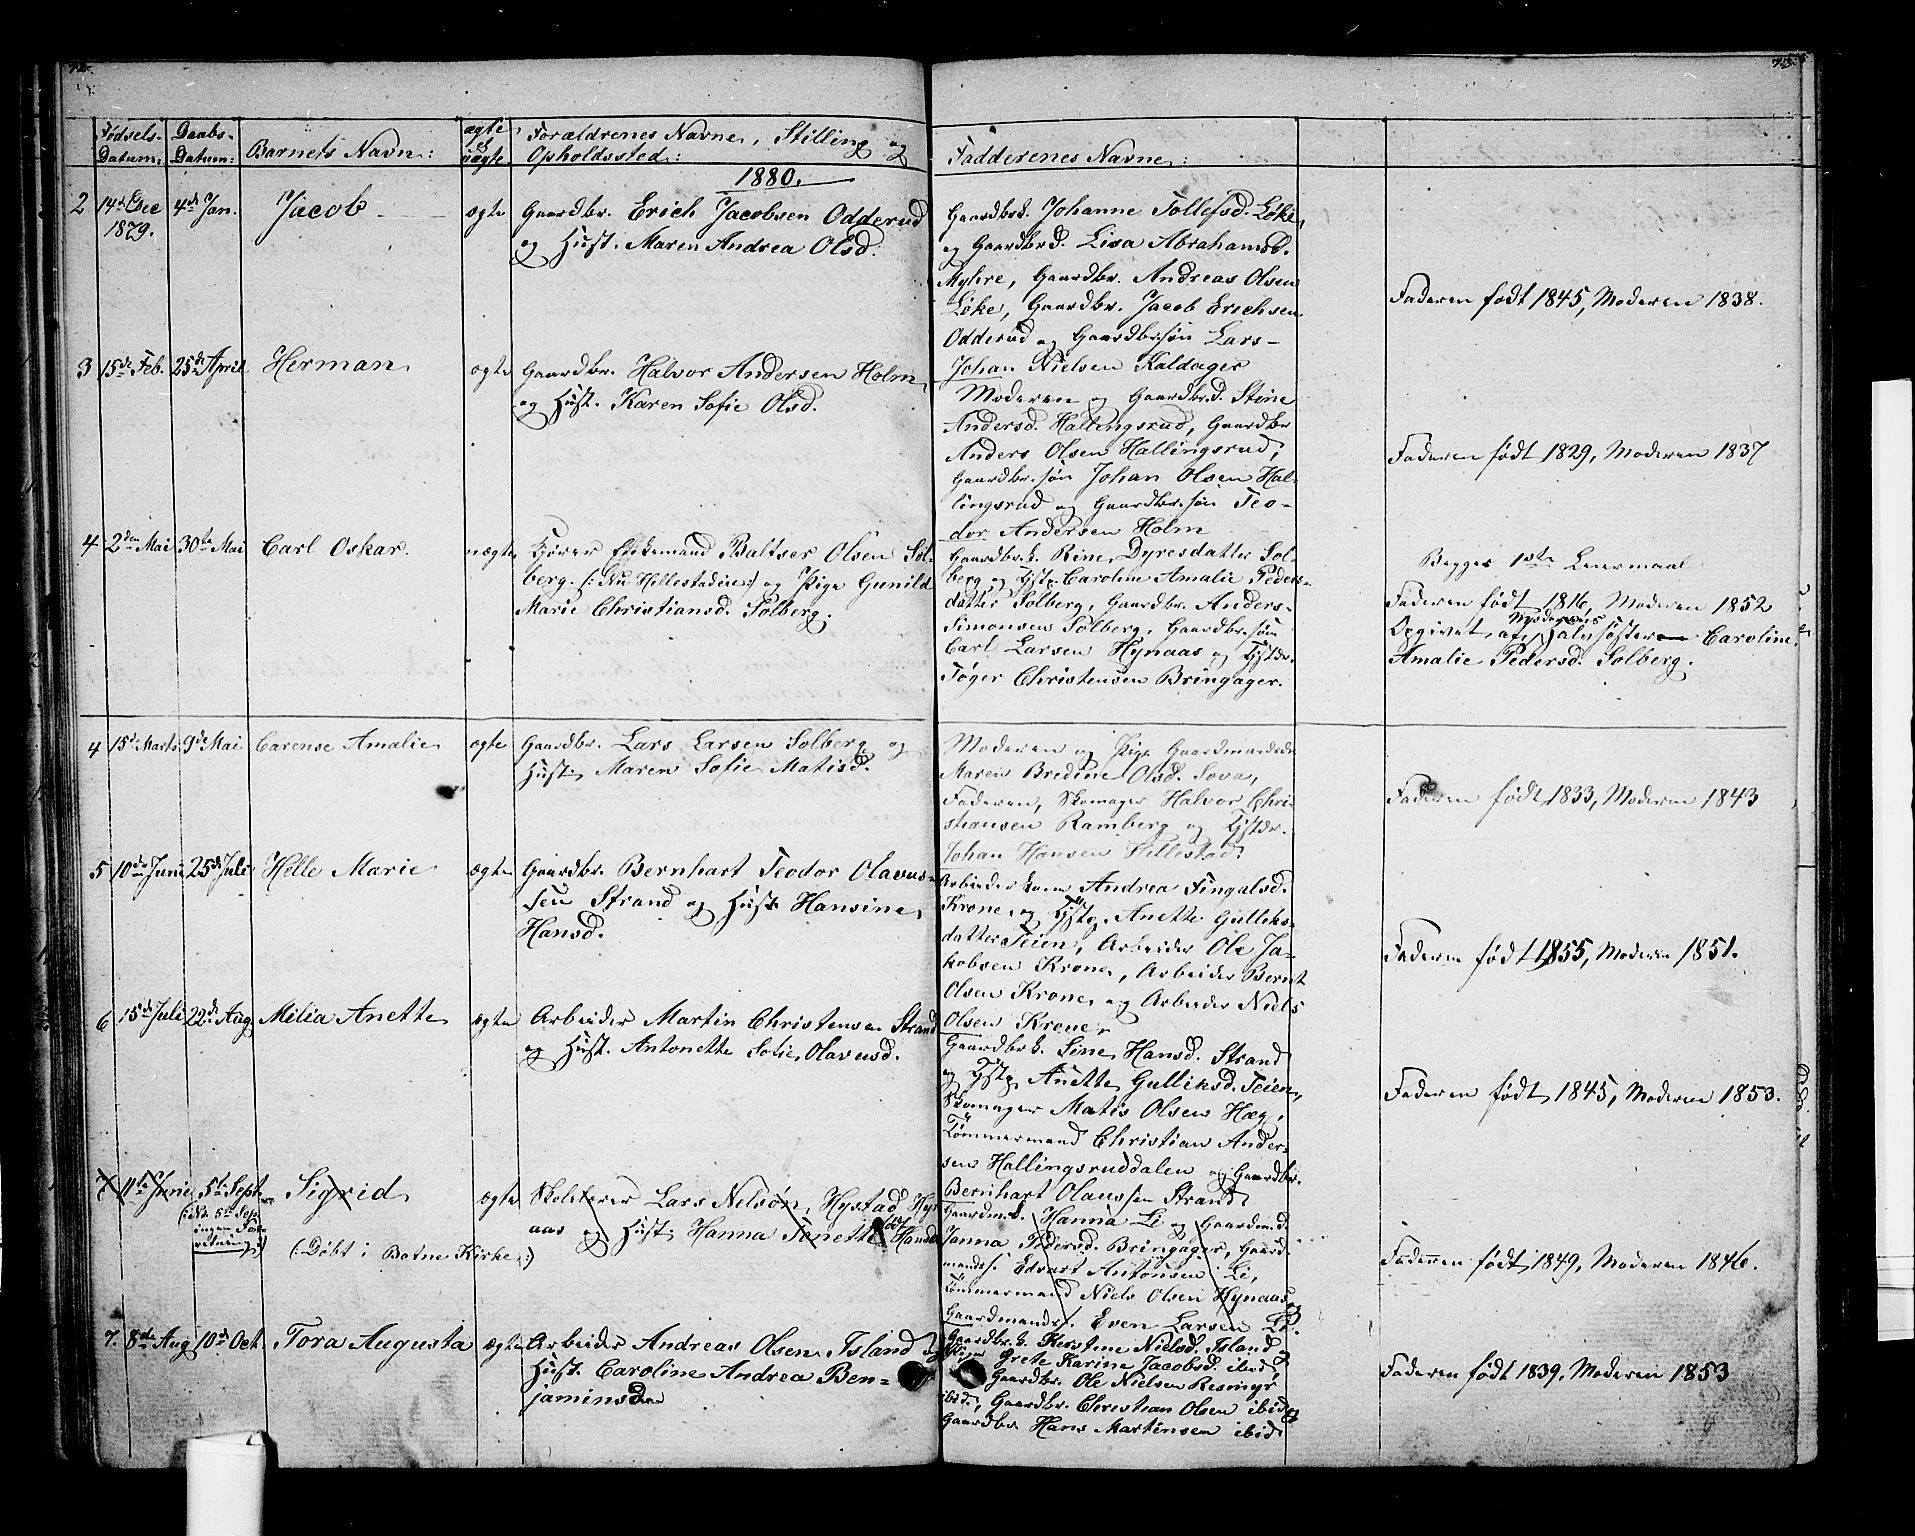 72.
Fødsels-
Datum:
Daabs-
Datum:
Barnets Navn:
ægte
el
uægte
Forældrenes Navne, Stilling og
Opholdssted:
1880.
2 14de Dec 4de Jan. Jacob ægte Gaardbr. Erich Jacobsen Odderud
1879. og Hust. Maren Andrea Olsd.
3 15de Feb. 25de April Herman ægte Gaardbr. Halvor Andersen Holm
og Hust. Karen Sofie Olsd.
4 2den Mai 30te Mai Carl Oskar. uægte Baltser Olsen Sol-
berg. (: Nu Hillestadie :) og Pige Gunild
Marie Christiansd. Solberg.
4 15de Marts 9de Mai Carense Amalie ægte Gaardbr. Lars Larsen Solberg og
Hust. Maren Sofie Matisd.
5 10de Juni 25de Juli Helle Marie ægte Gaardbr. Bernhart Teodor Olavus-
sen Strand og Hust. Hansine
Hansd.
6 15de Juli 22de Aug Milia Anette ægte Arbeider Martin Christensen Strand
og Hust. Antonette Sofie Olavusd.
7 11te Junie 5te Sept. Sigrid ægte Skolelærer Lars Nelsøn, Hystad Hyn
aas og Hust. Hanna Tonette Hansd
(: No. 5te Sep.
ingen For-
retning :)
(: Døbt i Botne Kirke :)
7. 8de Aug 10de Oct. Tora Augusta ægte Arbeider Andreas Olsen Island og
Hust. Caroline Andrea Ben-
jaminsd
73.
Fadderenes Navne:
Gaardbr.k. Johanne Tollefsd. Løke,
og Gaardbr.d. Lisa Abrahamsd.
Myhre, Gaardbr. Andreas Olsen
Løke, Gaardbr. Jacob Erichsen
Odderud og Gaardbr.søn Lars-
Johan Nielsen Kaldager
Faderen født 1845, Moderen 1838.
Moderen og Gaardbr.d. Stine
Andersd. Hallingsrud, Gaardbr
Anders Olsen Hallingsrud,
Gaardbr.søn Johan Olsen Hal-
lingsrud og Gaardbr.søn Teo-
dor Andersen Holm
Faderen født 1829, Moderen 1837
Gaardbr.k. Rine Dyresdatter Sol-
berg og Tjstp. Caroline Amalie Peders-
datter Solberg, Gaardbr. Anders-
Simonsen Solberg, Gaardbr.søn
Carl Larsen Hynaas og Tjstdr.
Tøger Christensen Bringager.
Begges 1ste Leiermaal
Faderen født 1816, Moderen 1852
Opgivet af Moderens Halvsøster Caroline
Amalie Pedersd. Solberg.
Moderen og Pige Gaardmandsdr
Maren Bredine Olsd. Sova,
Faderen, Skomager Halvor Chri-
stiansen Ramberg og Tjstdr.
Johan Hansen Hillestad.
Faderen født 1833, Moderen 1843
Arbeider kone Andrea Fingalsd.
Krone, og Tjstp. Anette Gulliks-
datter Teien, Arbeider Ole Ja-
kobsen Krone, Arbeider Bernt
Olsen Krone, og Arbeider Niels
Olsen Krone
Faderen født 1855, Moderen 1851.
Gaardbr.k. Sine Hansd. Strand
og Tjstp. Anette Gulliksd. Teien,
Skomager Matis Olsen Hæg,
Tømmermand Christian Ander-
sen Hallingsruddalen og Gaardbr.
Bernhart Olaussen Strand
Faderen født 1845, Moderen 1853.
Gaardm.k. Hanna Li og Gaardm.d.
Janna Pedersd. Bringager, Gaard
mands. Edvart Antonsen Li,
Tømmermand Niels Olsen Hynaas, og
Gaardmands. Even Larsen Li.
Faderen født 1849, Moderen 1846.
Gaardbr.k. Kerstine Nielsd. Island
Pige Grete Karine Jacobsd. ibid,
Gaardbr. Ole Nielsen Resmyr
ibid, Gaardbr. Christian Olsen ibid og
Gaardbr Hans Martinsen ibid
Faderen født 1839, Moderen 1853